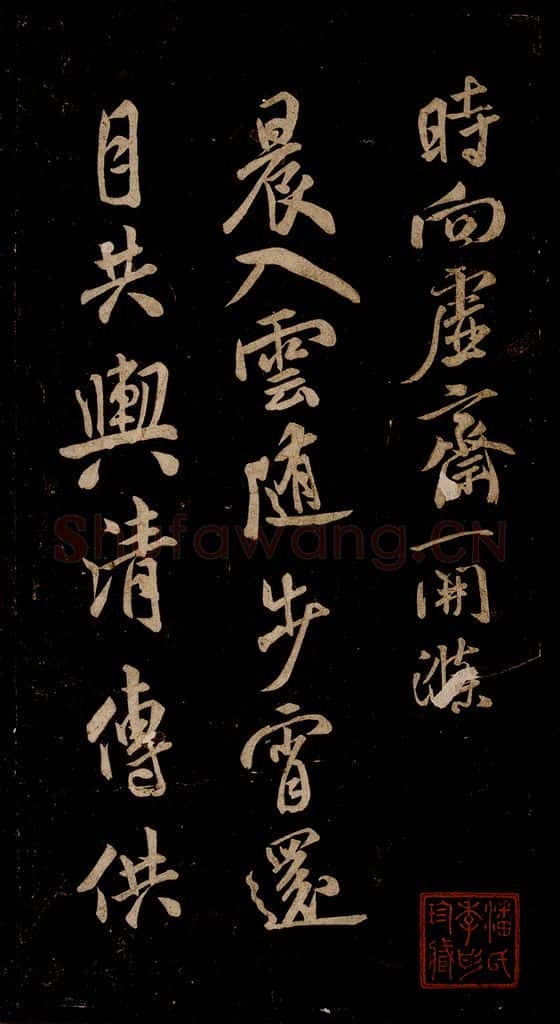 時向虛齋一開滌
晨入雲隨步宵還
目共輿清傳供
潘氏
季彤
珍藏
Shufawang.CN